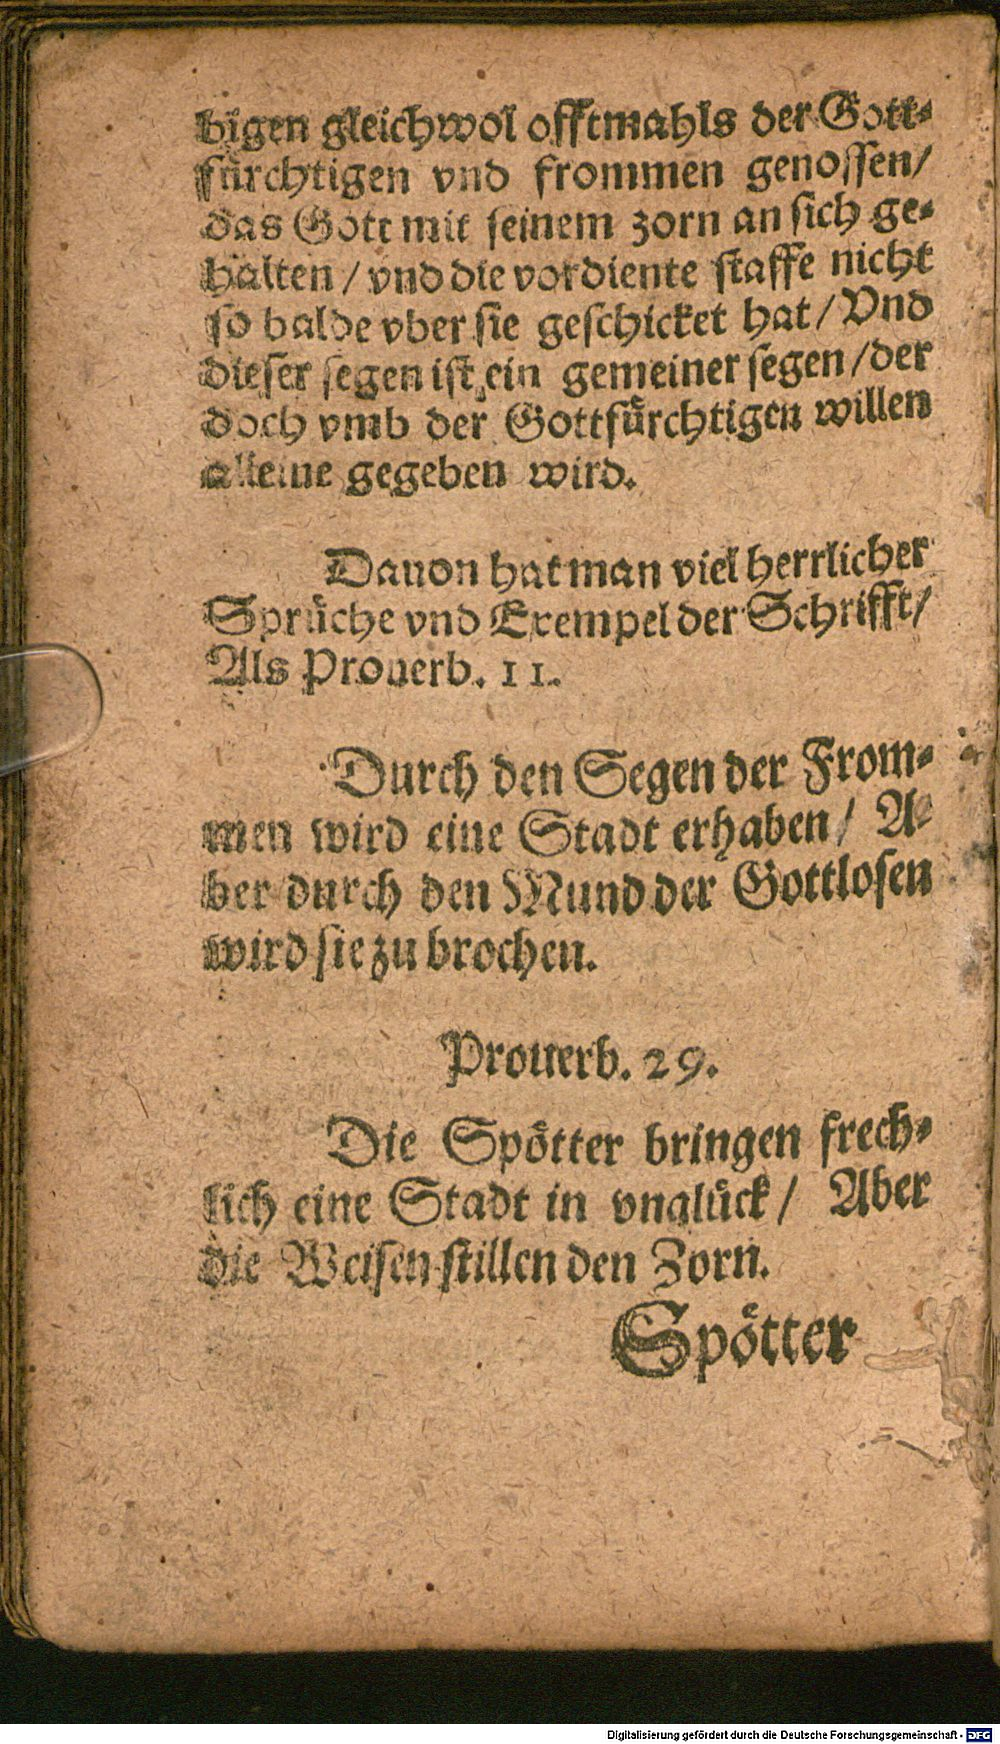 bigen gleichwol offtmahls der Gott-
fürchtigen vnd frommen genossen/
das Gott mit seinem zorn an sich ge-
halten / vnd die vordiente staffe nicht
so balde vber sie geschicket hat / Vnd
dieser segen ist ein gemeiner segen / der
doch vmb der Gottfürchtigen willen
alleine gegeben wird.
Dauon hat man viel herrlicher
Sprüche vnd Exempel der Schrifft/
Als Prouerb. 11.
Durch den Segen der From-
men wird eine Stadt erhaben / A-
ber durch den Mund der Gottlosen
wird sie zu brochen.
Prouerb. 29.
Die Spötter bringen frech-
lich eine Stadt in vnglück / Aber
die Weisen stillen den Zorn.
Spötter
Digitalisierung gefördert durch die Deutsche Forschungsgemeinschaft - DFG